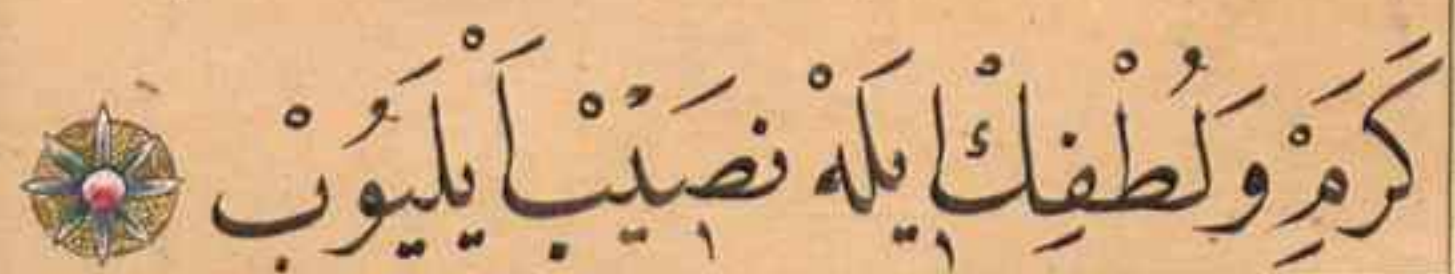 كَرَمْ وَلُطْفِكْ اِيلَهْ نَصِيْبْ اَيْلَيُوبْ